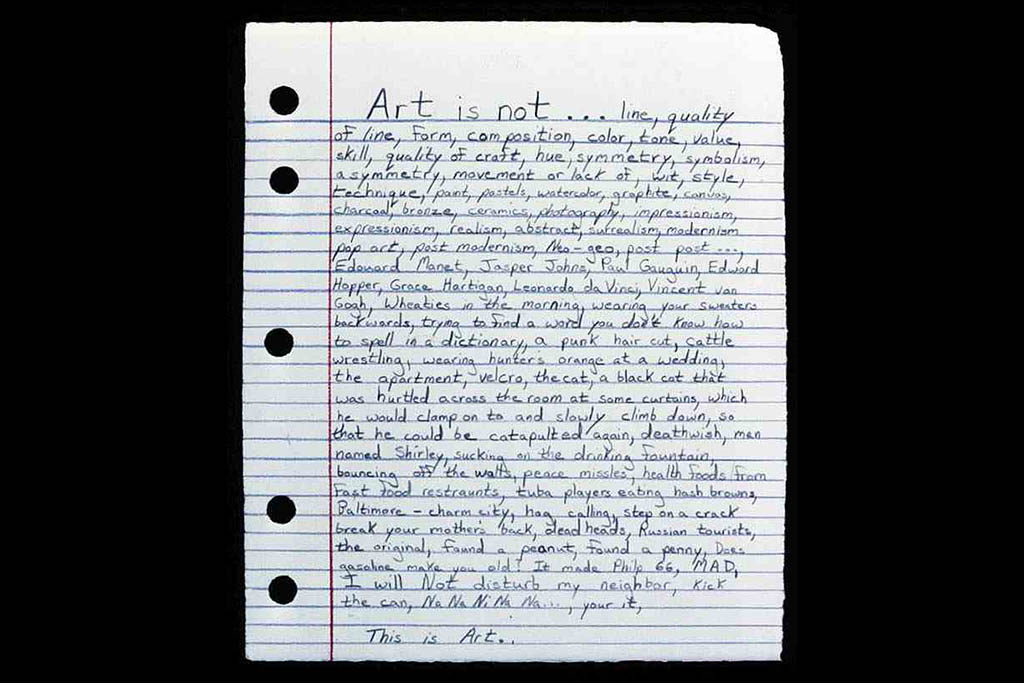 Art is not... line, quality
of line, form, composition, color, tone, value,
skill, quality of craft, hue, symmetry, symbolism,
asymmetry, movement or lack of, wit, style,
technique, paint, pastels, watercolor, graphite, canvas,
charcoal, bronze, ceramics, photography, impressionism,
expressionism, realism, abstract, surrealism, modernism
pop art, post modernism, Neo-geo, post post ...,
Edouard Manet, Jasper Johns, Paul Gauguin, Edward
Hopper, Grace Hartigan, Leonardo da Vinci, Vincent van
Gogh, Wheaties in the morning, wearing your sweaters
backwards, trying to find a word you don't know how
to spell in a dictionary, a punk hair cut, cattle
wrestling, wearing hunter's orange at a wedding,
the apartment, velcro, the cat, a black cat that
was hurtled across the room at some curtains, which
he would clamp on to and slowly climb down, so
that he could be catapulted again, deathwish, men
named Shirley, sucking on the drinking fountain,
bouncing off the walls, peace missles, health foods from
fast food restraunts, tuba players eating hash browns,
Baltimore - charm city, hog calling, step on a crack
break your mother's back, dead heads, Russian tourists,
the original, found a peanut, found a penny, Does
gasoline make you old? It made Philp 66, MAD,
I will Not disturb my neighbor, kick
the can, Na Na Ni Na Na..., your it,
This is Art..